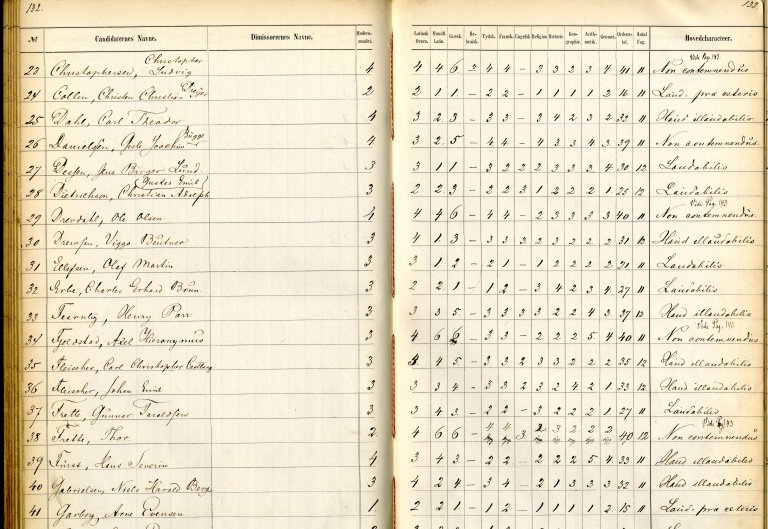 132. 132.
№ Candidaternes Navne. Dimissorernes Navne. Modersmaalet. Latinsk Overs. Mundtl. Latin. Græsk. Hebraisk. Tydsk. Fransk. Engelsk Religion Historie Geographie. Arithmetik. Geomet. Hovedcharacteer.
Vide Pag. 143.
23 Christophersen, Christopher Ludvig 4 4 4 6 2 4 4 – 3 3 2 3 4 41 11 Non contemnendus
24 Collin, Christen Christian Dreyer 2 2 1 1 – 2 2 – 1 1 1 1 2 16 11 Laud. præ ceteris
25 Dahl, Carl Theodor 3 2 3 – 3 3 – 3 4 2 3 2 33 11 Haud illaudabilis
26 Danielsen, Joachim Bügge 4 3 2 5 – 4 4 – 4 3 3 4 3 39 11 Non contemnendus
27 Dessen, Jens Birger Lund 3 3 1 1 – 3 2 2 2 3 3 3 4 30 12 Laudabilis
28 Dietrichson, Gustav Emil Christian Adolph 3 2 2 3 – 2 2 3 1 2 2 2 1 25 12 Laudabilis
Vide Pag. 143
29 Drevdahl, Ole Olsen 4 4 4 6 – 4 4 – 2 3 3 3 3 40 11 Non contemnendus
30 Drewsen, Viggo Beutner 3 4 1 3 – 3 3 3 2 3 2 2 2 31 12 Haud illaudabilis
31 Ellefsen, Olaf Martin 3 3 1 2 – 2 1 – 1 2 2 2 2 21 11 Laudabilis
32 Erbe, Charles Erhard Brun 3 2 2 1 – 1 2 – 3 4 2 3 4 27 11 Laudabilis
33 Fearnley, Henry Parr 3 3 3 5 – 3 3 3 3 2 2 4 3 37 12 Haud illaudabilis
Vide Pag. 143
34 Fjelstad, Axel Hieronymus 3 4 6 6 – 3 3 – 2 2 2 5 4 40 11 Non contemnendus
35 Fleischer, Carl Christopher 3 4 4 5 – 3 3 2 3 3 2 2 2 35 12 Haud illaudabilis
36 Fleischer, Johan Emil 3 3 3 4 – 3 3 2 3 2 4 2 1 33 12 Haud illaudabilis
37 Frette Gunnar Taraldsen 3 3 4 3 – 2 2 – 3 2 2 2 1 27 11 Laudabilis
38 Frette, Thor. 2 4 6 6 – 4 4 3 2 3 2 2 2 40 12 Non contemnendus
39 Fürst, Hans Severin 4 3 4 3 – 2 2 – 2 2 2 5 4 33 11 Haud illaudabilis
40 Gabrielsen, Niels Harald Berg 3 4 2 4 – 3 4 – 2 1 3 3 3 32 11 Haud illaudabilis
41 Garborg, Arne Evensen 1 2 2 1 – 1 2 – 1 1 1 1 2 15 11 Laud. præ ceteris